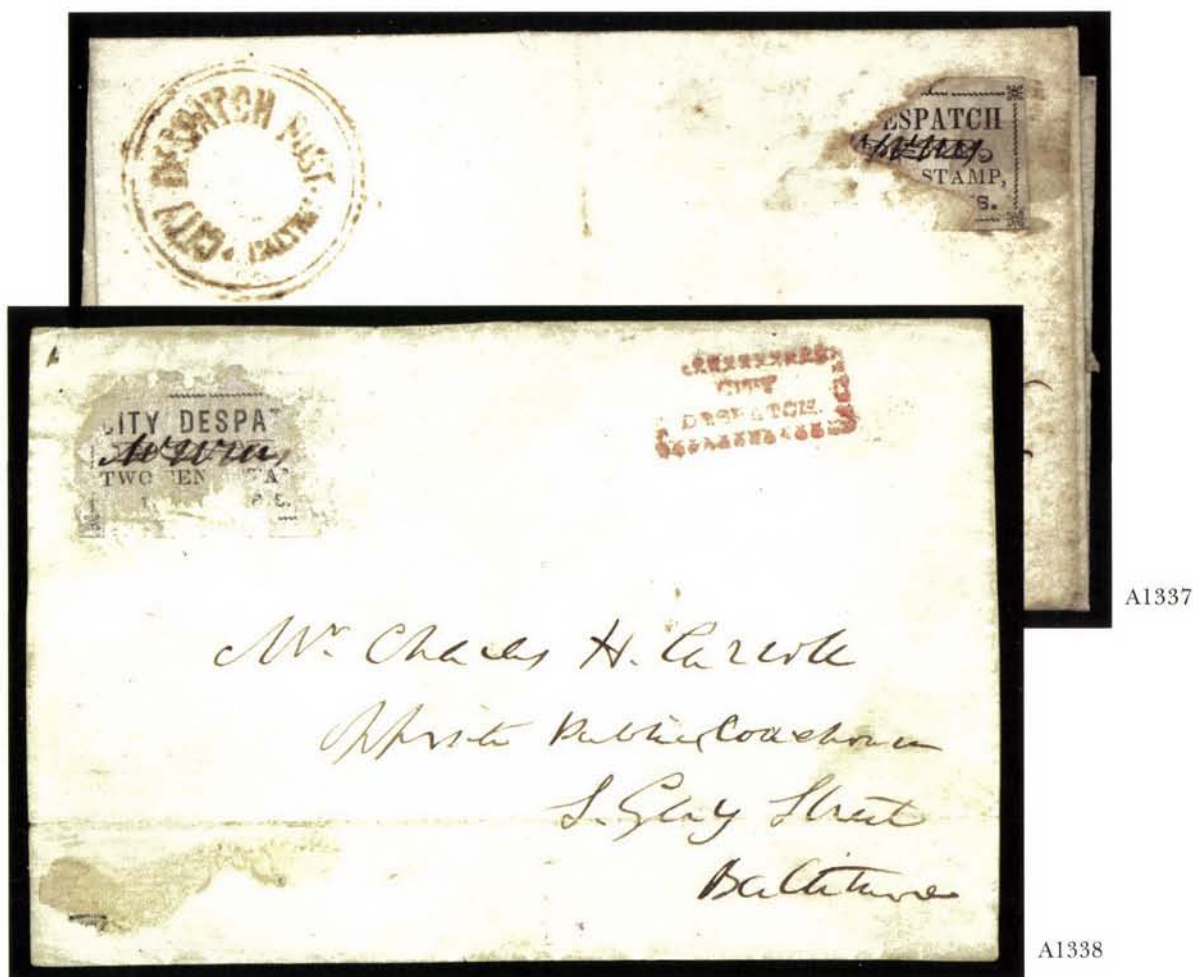 CITY DESPATCH POST.
BALTIMO
ESPATCH
STAMP,
S.
A1337
CITY DESPAT
TWO CEN
CITY
DESPATCH.
Mr. Charles H.
Opposite Public
S. Gay Street
Baltimore
A1338